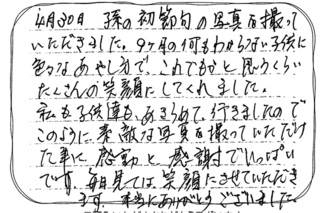 4月30日 孫の初節句の写真を撮って
いただきました。9ヶ月の何もわからない子供に
色々なあやし方で、これでもかと思うくらい
たくさんの笑顔にしてくれました。
私も子供達も、あきらめて、行きましたので
このように素敵な写真を撮っていただけ
た事に感動と感謝でいっぱい
です。毎日見ては笑顔にさせていただき
ます。本当にありがとうございました。